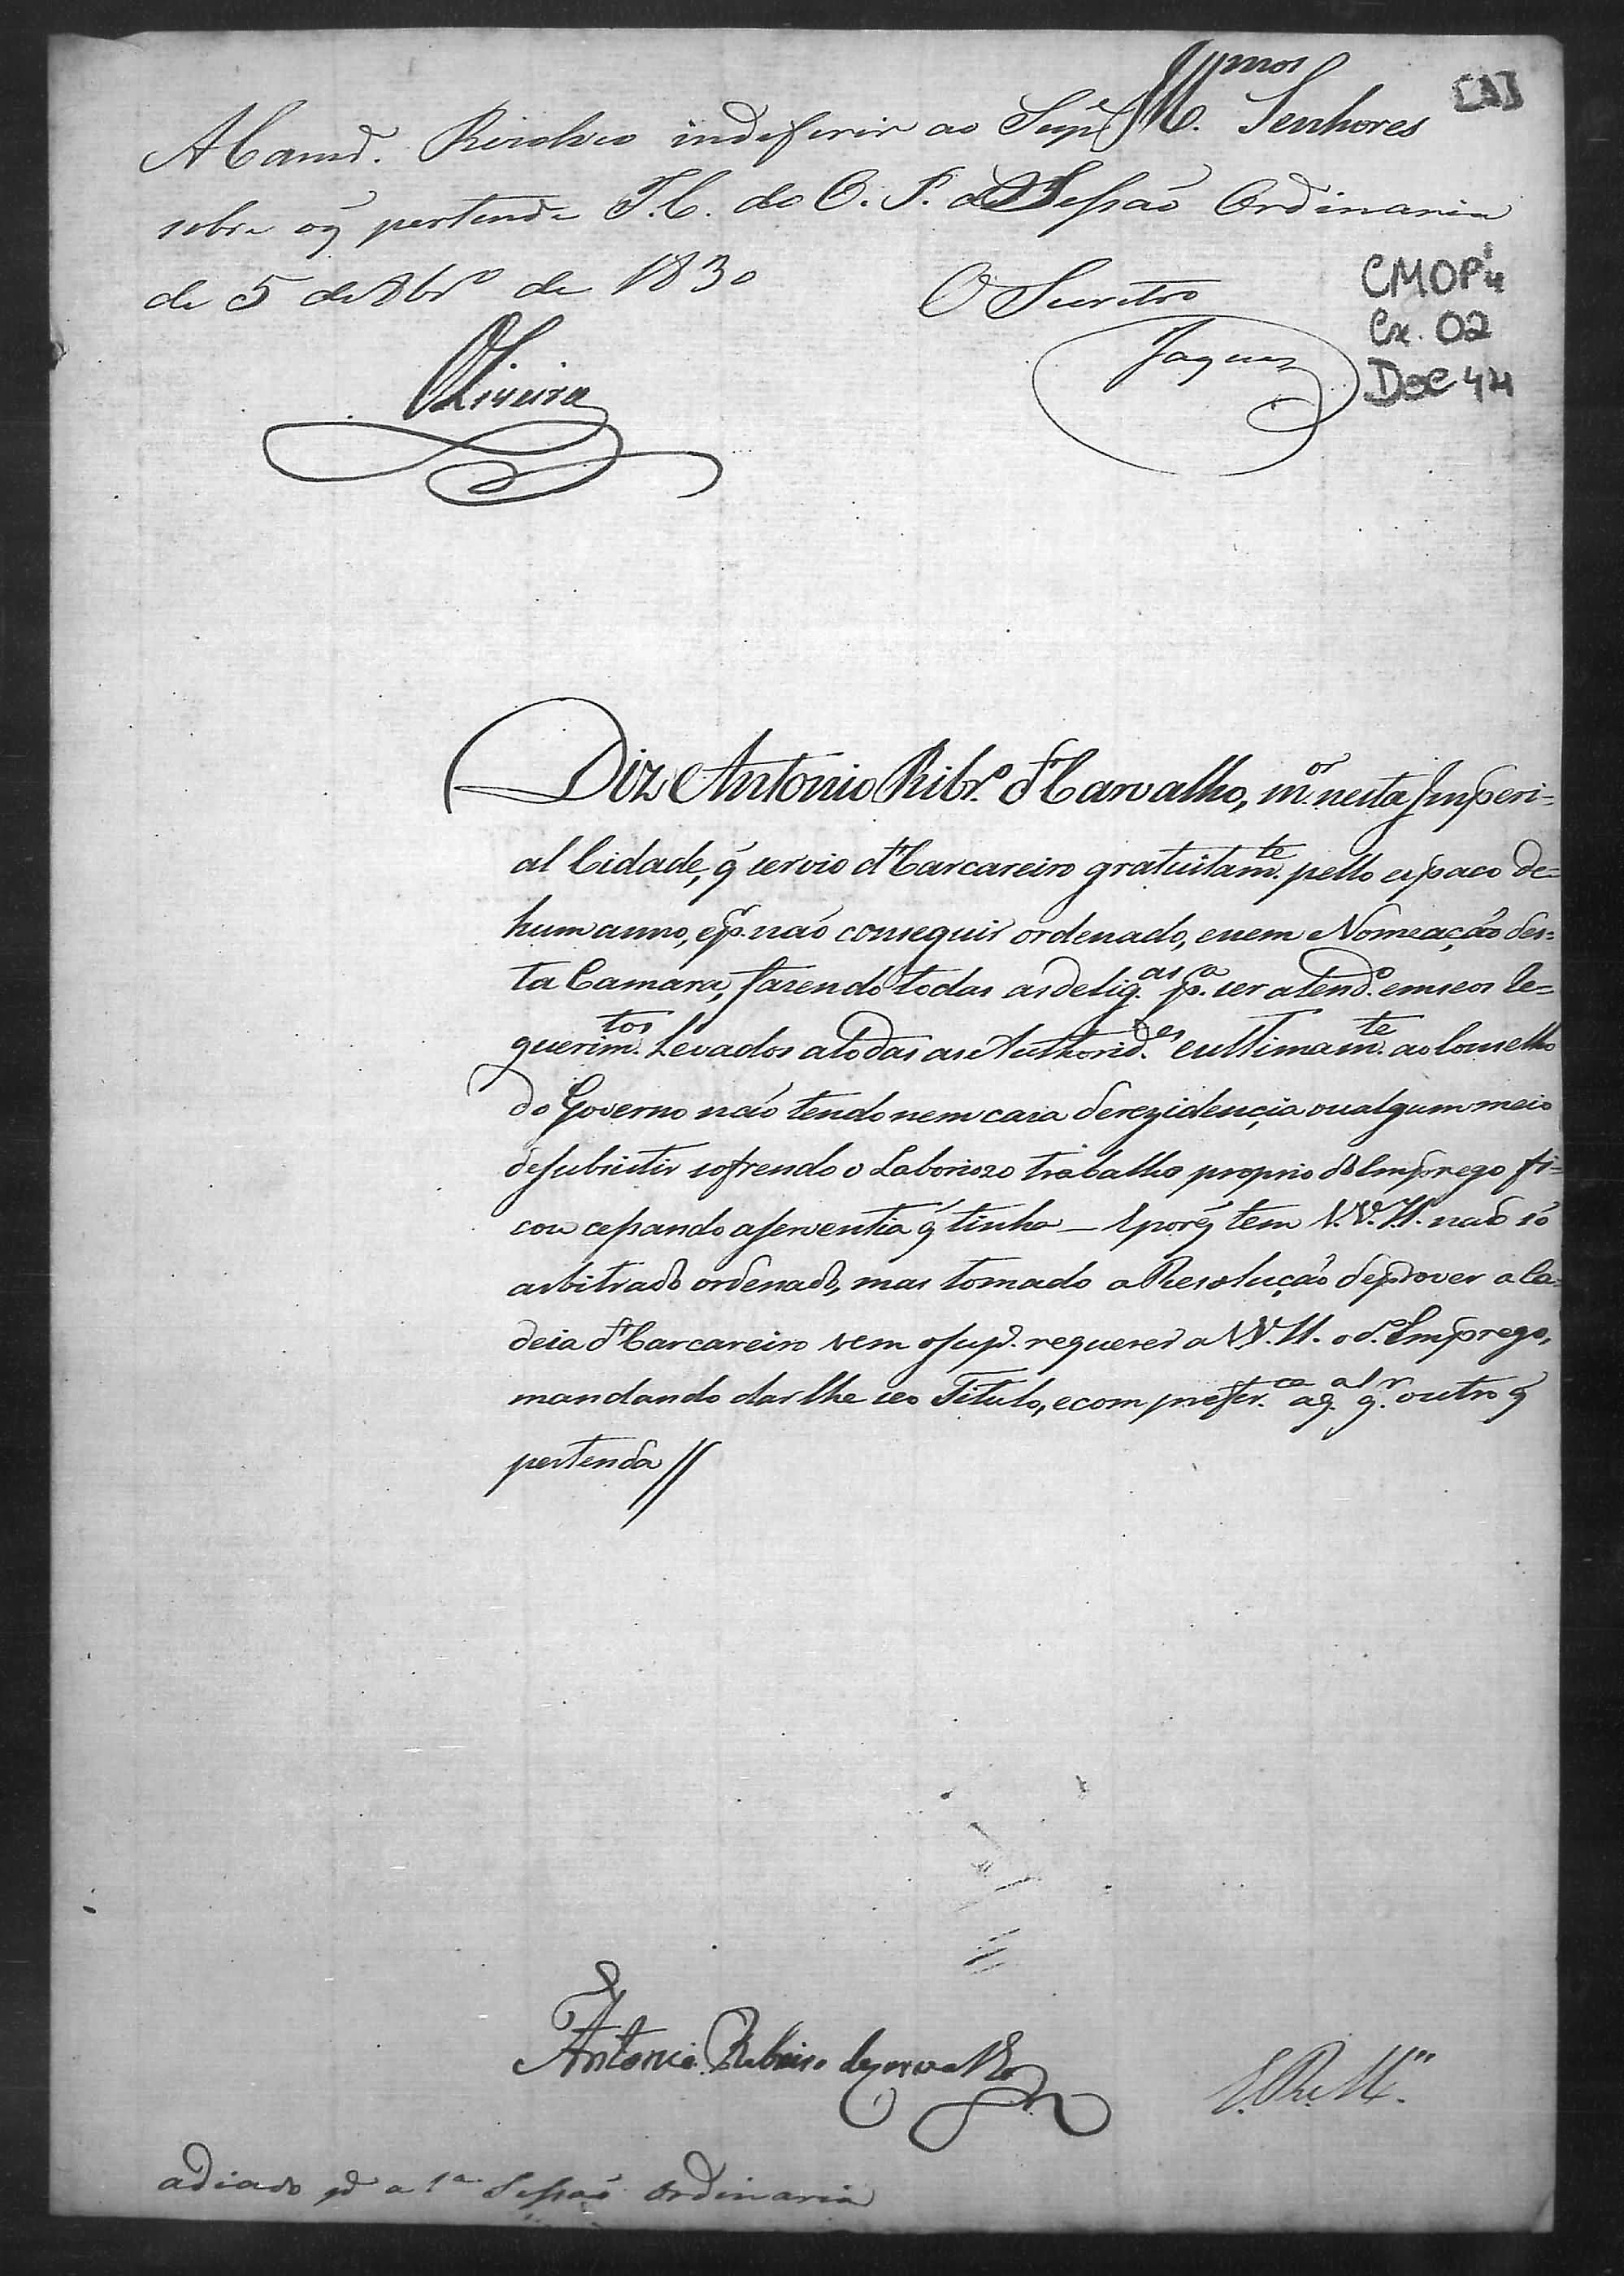 Illmos
Senhores
A Camr.ª Rezolveo indeferir ao Supe
sobre oq̃ pertende P. C. do O. P. Sessaõ Ordinaria
de 5 de 8brº de 1830
O Secretrº
Oliveira
Jaques
CMOP
Cx. 02
Doc 44
Diz Antonio Ribrº d'Carvalho, mºr nesta Imperi=
al Cidade, q̃ servio d'Carcareiro gratuitamte pello espaco de=
hum anno, e pr naõ conseguir ordenado, enem Nomeaçaõ des=
ta Camara, fazendo todas as deligas pa ser atendº em seos Re=
querimtos Levados a todas as Authorides eultimamte ao Conselho
do Governo naõ tendo nem caza derezidençia ou algum meio
desubsistir sofrendo o Laboriozo trabalho proprio do Emprego fi=
cou cessando aserventia q̃ tinha _ Eporq̃ tem V.V.S.S. naõ só
arbitrado ordenado, mas tomado a Resoluçaõ deprover a Ca=
deia d'Carcareiro vem osupe requerer a V.V.S.S. o dº Emprego,
mandando darlhe seo Titulo, ecom preferca aqalqr outro q̃
pertenda //
Antonio Ribeiro Carvalho
E. R. Mce
adiado pª a 1ª Sessaõ Ordinaria